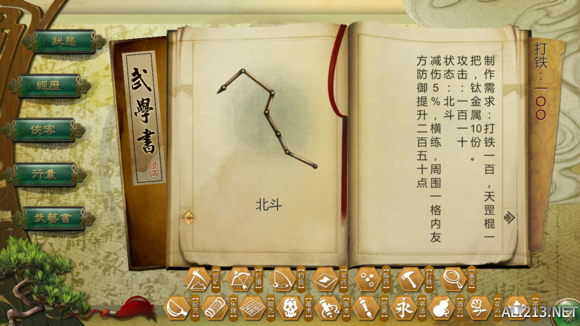 狀態
經歷
俠客
行囊
武藝書
武學書
北斗
打铁：一〇〇
制作需求：打铁一百，天罡棍一
把，钛金属10份。
攻击：一百一十
状态：北斗
减伤5%，横练，周围一格内友
方防御提升二百五十点
ALI213.NET